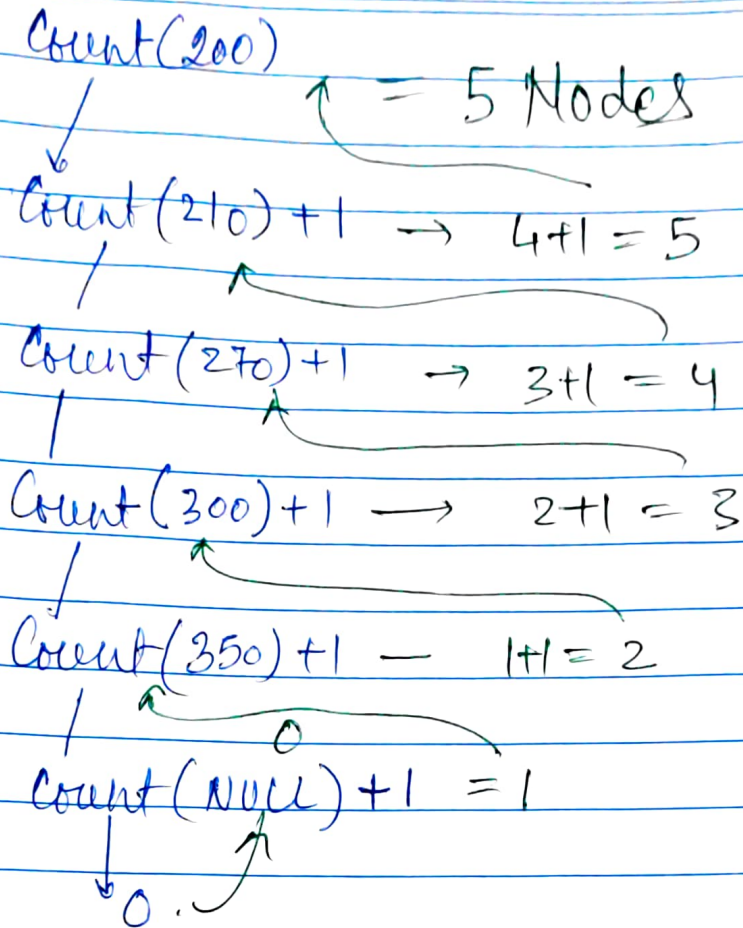 Count(200)
= 5 Nodes
Count(210) +1 → 4+1 = 5
Count(270)+1 → 3+1 = 4
Count(300)+1 → 2+1 = 3
Count(350)+1 — 1+1 = 2
0
Count(NULL)+1 = 1
0